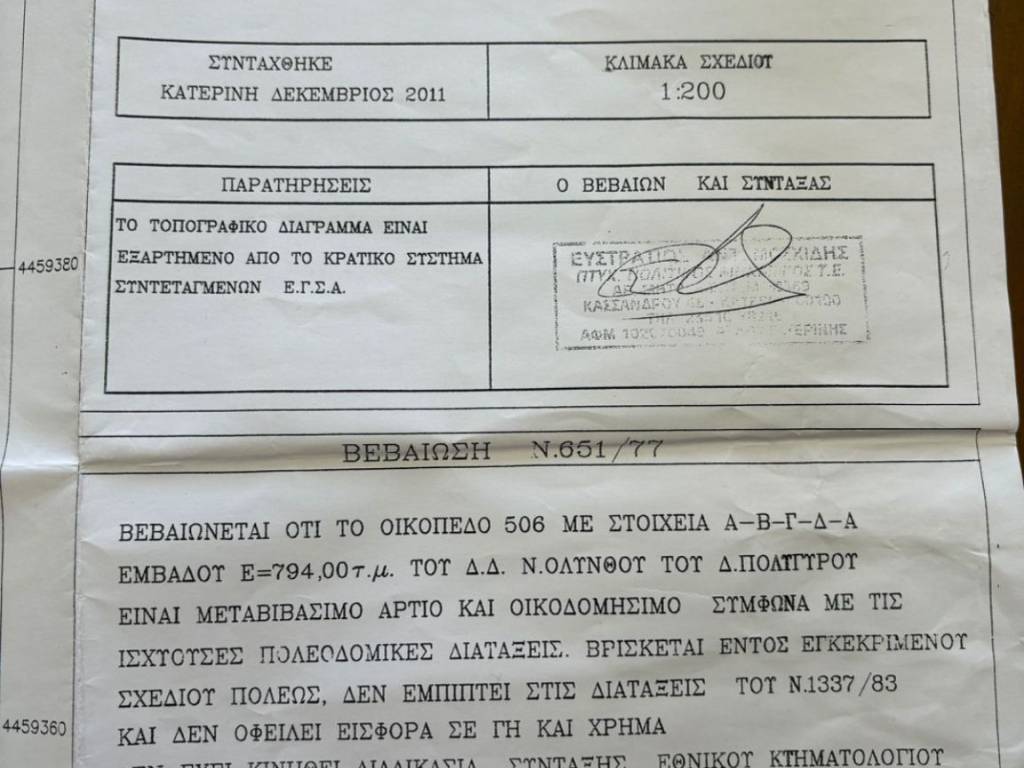 ΣΥΝΤΑΧΘΗΚΕ
ΚΑΤΕΡΙΝΗ ΔΕΚΕΜΒΡΙΟΣ 2011
ΚΛΙΜΑΚΑ ΣΧΕΔΙΟΥ
1:200
ΠΑΡΑΤΗΡΗΣΕΙΣ
ΤΟ ΤΟΠΟΓΡΑΦΙΚΟ ΔΙΑΓΡΑΜΜΑ ΕΙΝΑΙ
ΕΞΑΡΤΗΜΕΝΟ ΑΠΟ ΤΟ ΚΡΑΤΙΚΟ ΣΥΣΤΗΜΑ
ΣΥΝΤΕΤΑΓΜΕΝΩΝ Ε.Γ.Σ.Α.
Ο ΒΕΒΑΙΩΝ ΚΑΙ ΣΥΝΤΑΞΑΣ
ΕΥΣΤΡΑΤΙΟΣ ΜΟΣΧΙΔΗΣ
ΠΤΥΧ. ΠΟΛΙΤΙΚΟΣ Τ.Ε.
ΚΑΣΣΑΝΔΡΟΥ
ΑΦΜ
4459380
ΒΕΒΑΙΩΣΗ Ν.651/77
ΒΕΒΑΙΩΝΕΤΑΙ ΟΤΙ ΤΟ ΟΙΚΟΠΕΔΟ 506 ΜΕ ΣΤΟΙΧΕΙΑ Α-Β-Γ-Δ-Α
ΕΜΒΑΔΟΥ Ε=794,00τ.μ. ΤΟΥ Δ.Δ. Ν.ΟΛΥΝΘΟΥ ΤΟΥ Δ.ΠΟΛΥΓΥΡΟΥ
ΕΙΝΑΙ ΜΕΤΑΒΙΒΑΣΙΜΟ ΑΡΤΙΟ ΚΑΙ ΟΙΚΟΔΟΜΗΣΙΜΟ ΣΥΜΦΩΝΑ ΜΕ ΤΙΣ
ΙΣΧΥΟΥΣΕΣ ΠΟΛΕΟΔΟΜΙΚΕΣ ΔΙΑΤΑΞΕΙΣ. ΒΡΙΣΚΕΤΑΙ ΕΝΤΟΣ ΕΓΚΕΚΡΙΜΕΝΟΥ
ΣΧΕΔΙΟΥ ΠΟΛΕΩΣ, ΔΕΝ ΕΜΠΙΠΤΕΙ ΣΤΙΣ ΔΙΑΤΑΞΕΙΣ ΤΟΥ Ν.1337/83
ΚΑΙ ΔΕΝ ΟΦΕΙΛΕΙ ΕΙΣΦΟΡΑ ΣΕ ΓΗ ΚΑΙ ΧΡΗΜΑ
4459360
ΕΧΕΙ ΚΙΝΗΘΕΙ ΔΙΑΔΙΚΑΣΙΑ ΣΥΝΤΑΞΗΣ ΕΘΝΙΚΟΥ ΚΤΗΜΑΤΟΛΟΓΙΟΥ